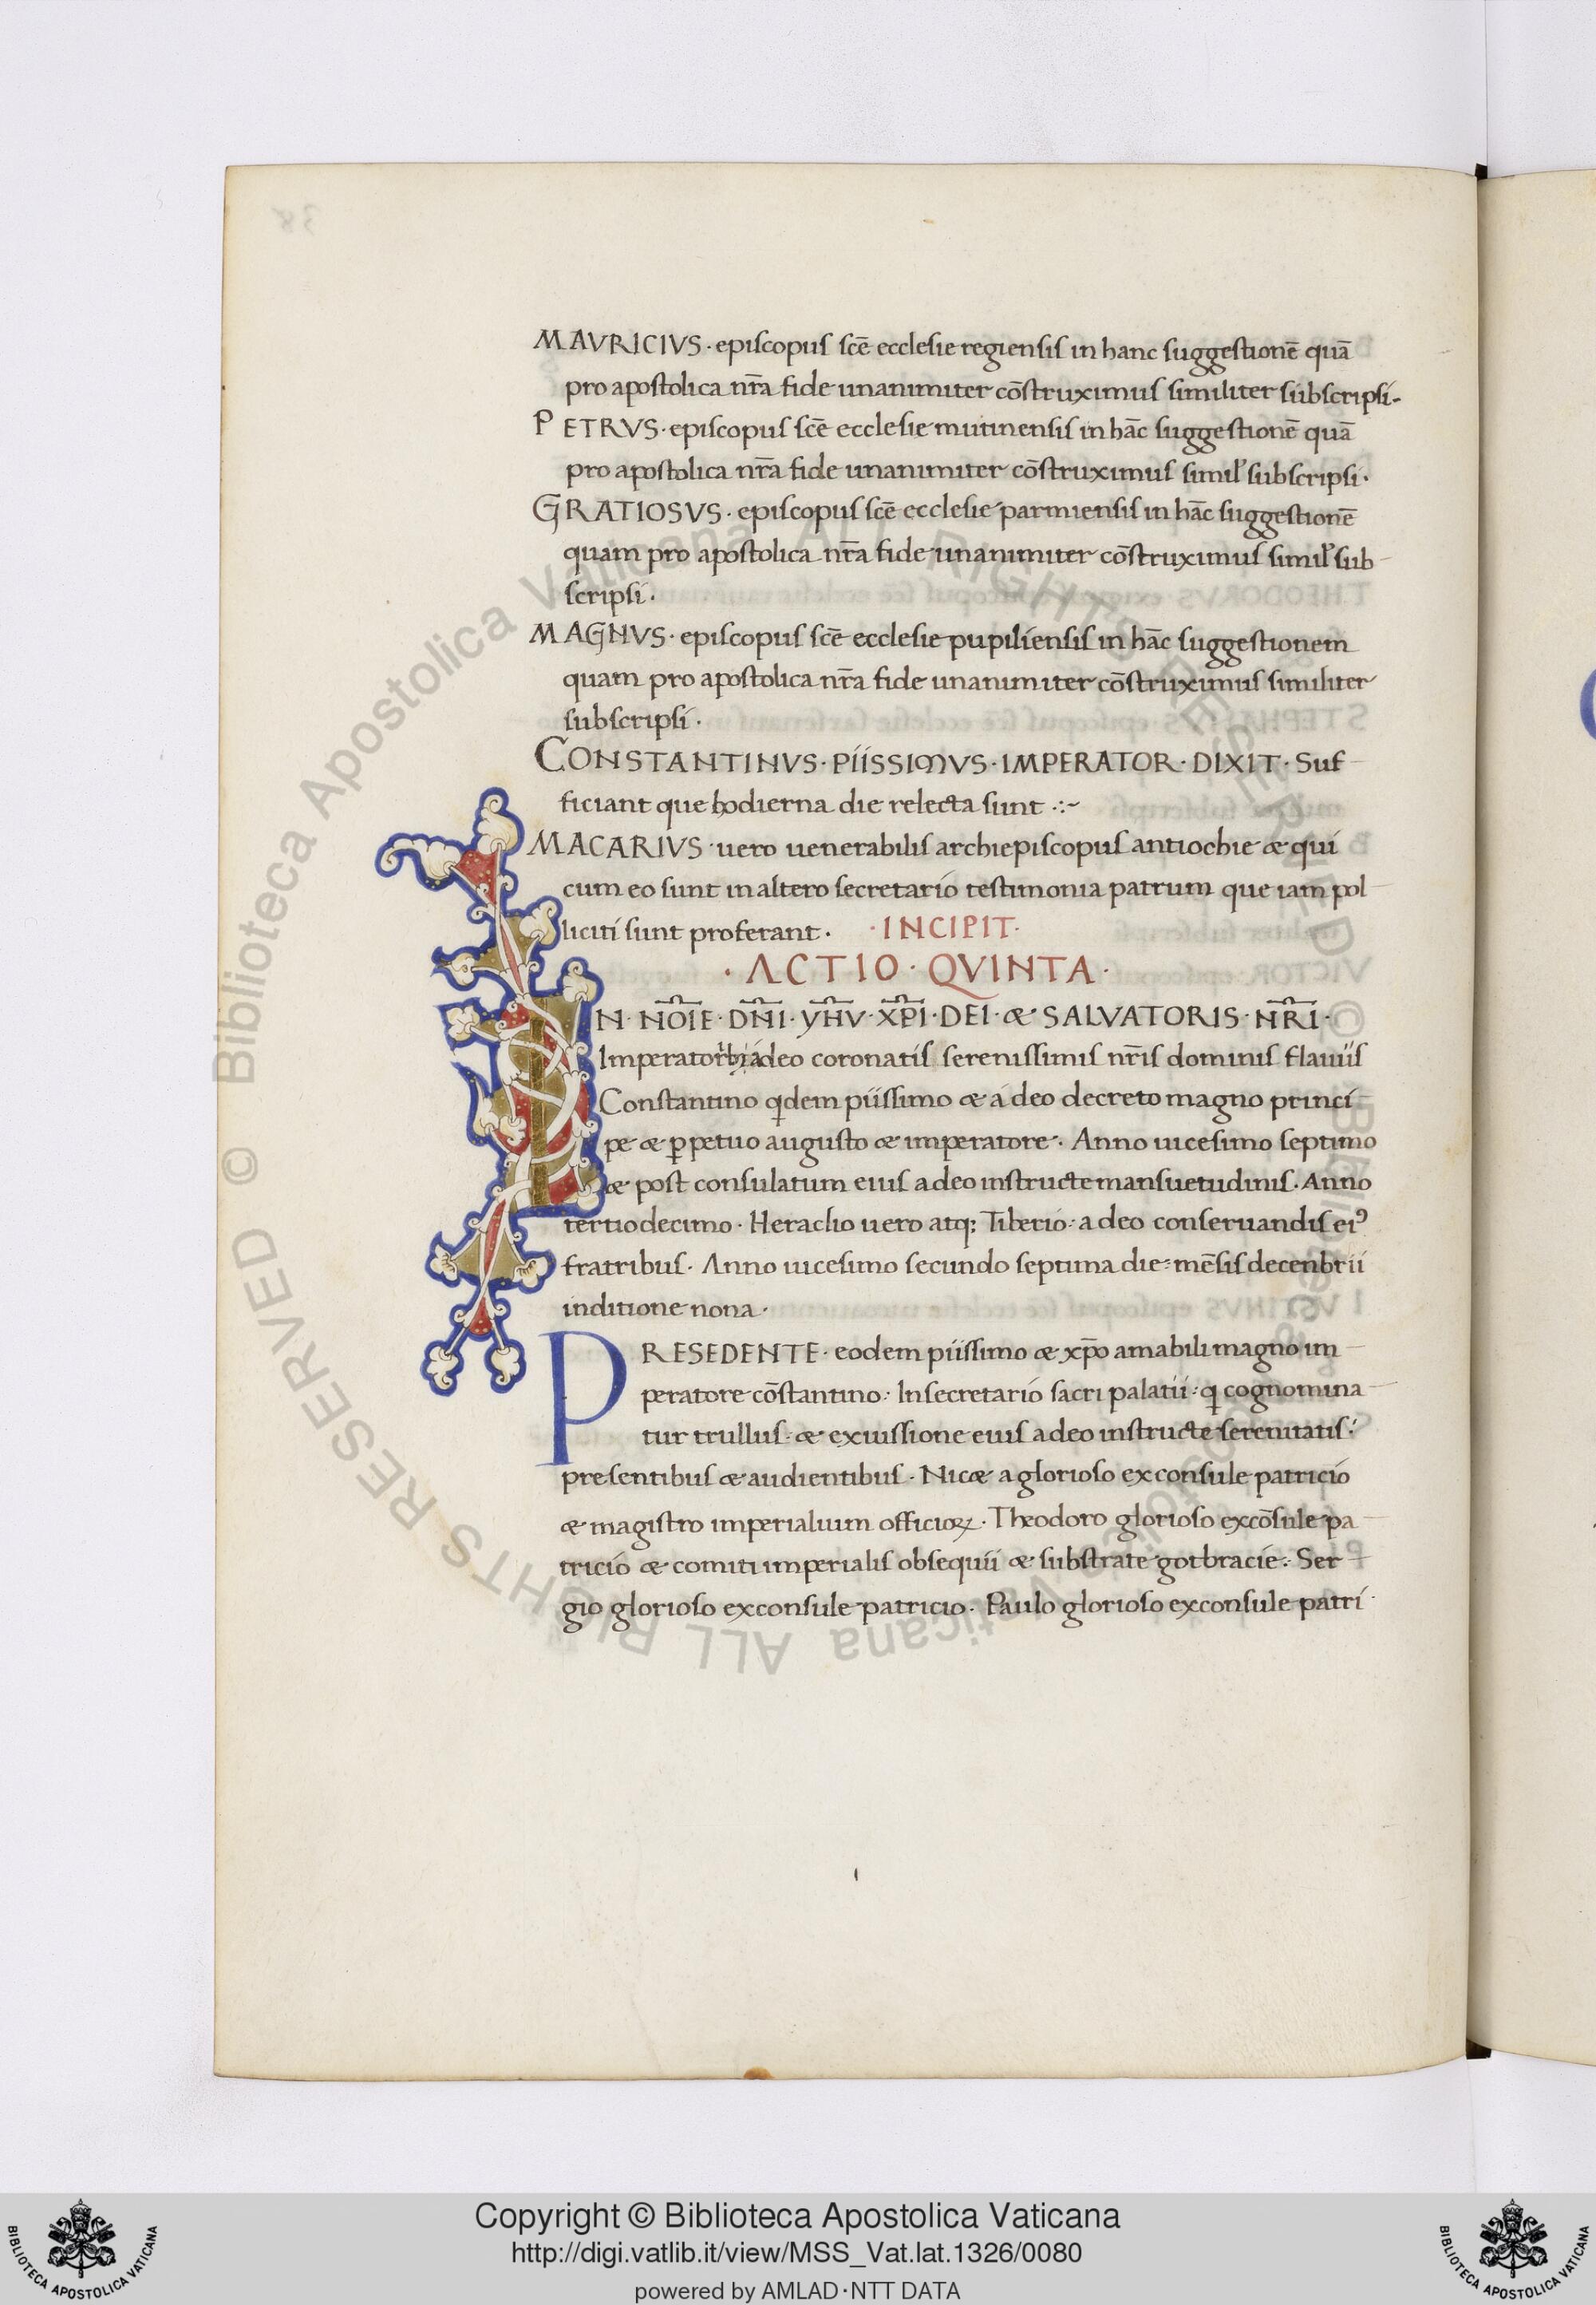 MAVRICIVS · episcopus scē ecclesie regiensis in hanc suggestionē quā
pro apostolica nr̄a fide unanimiter cōstruximus similiter subscripsi·
PETRVS · episcopus scē ecclesie mutinensis in hāc suggestionē quā
pro apostolica nr̄a fide unanimiter cōstruximus simil' subscripsi ·
GRATIOSVS · episcopus scē ecclesie parmiensis in hāc suggestionē
quam pro apostolica nr̄a fide unanimiter cōstruximus simil' sub
scripsi ·
MAGNVS · episcopus scē ecclesie pupiliensis in hāc suggestionem
quam pro apostolica nr̄a fide unanimiter cōstruximus similiter
subscripsi ·
CONSTANTINVS · PIISSIMVS · IMPERATOR · DIXIT · Suf
ficiant que hodierna die relecta sunt .:~
MACARIVS · uero uenerabilis archiepiscopus antiochie & qui
cum eo sunt in altero secretario testimonia patrum que iam pol
liciti sunt proferant · · INCIPIT ·
· ACTIO · QVINTA ·
IN · NŌIE · DN̄I · YHV̄ · XP̄I · DEI · & SALVATORIS · NR̄I ·
Imperatoribus a deo coronatis serenissimis nr̄is dominis flauiis
Constantino qdem piissimo & a deo decreto magno princi
pe & p̱petuo augusto & imperatore · Anno uicesimo septimo
& post consulatum eius a deo instructe mansuetudinis · Anno
tertiodecimo · Heraclio uero atq; Tiberio · a deo conseruandis eiꝰ
fratribus · Anno uicesimo secundo septima die mēsis decenbrii
inditione nona ·
PRESEDENTE · eodem piissimo & xp̄o amabili magno im
peratore cōstantino · In secretario sacri palatii · q cognomina
tur trullus · & ex iussione eius a deo instructe serenitatis ·
presentibus & audientibus · Nic& a glorioso exconsule patricio
& magistro imperialium officioꝝ · Theodoro glorioso excōsule pa
tricio & comiti imperialis obsequii & substrate gotbracie · Ser
gio glorioso exconsule patricio · Paulo glorioso exconsule patri
© Biblioteca Apostolica Vaticana ALL RIGHTS RESERVED © Biblioteca Apostolica Vaticana ALL RIGHTS RESERVED
Copyright © Biblioteca Apostolica Vaticana
http://digi.vatlib.it/view/MSS_Vat.lat.1326/0080
powered by AMLAD·NTT DATA
BIBLIOTECA APOSTOLICA VATICANA
BIBLIOTECA APOSTOLICA VATICANA